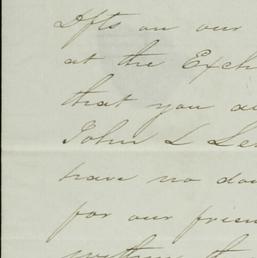 Dfts on our
at the Exch
that you a
John L Le
have no dou
for our frien
within th